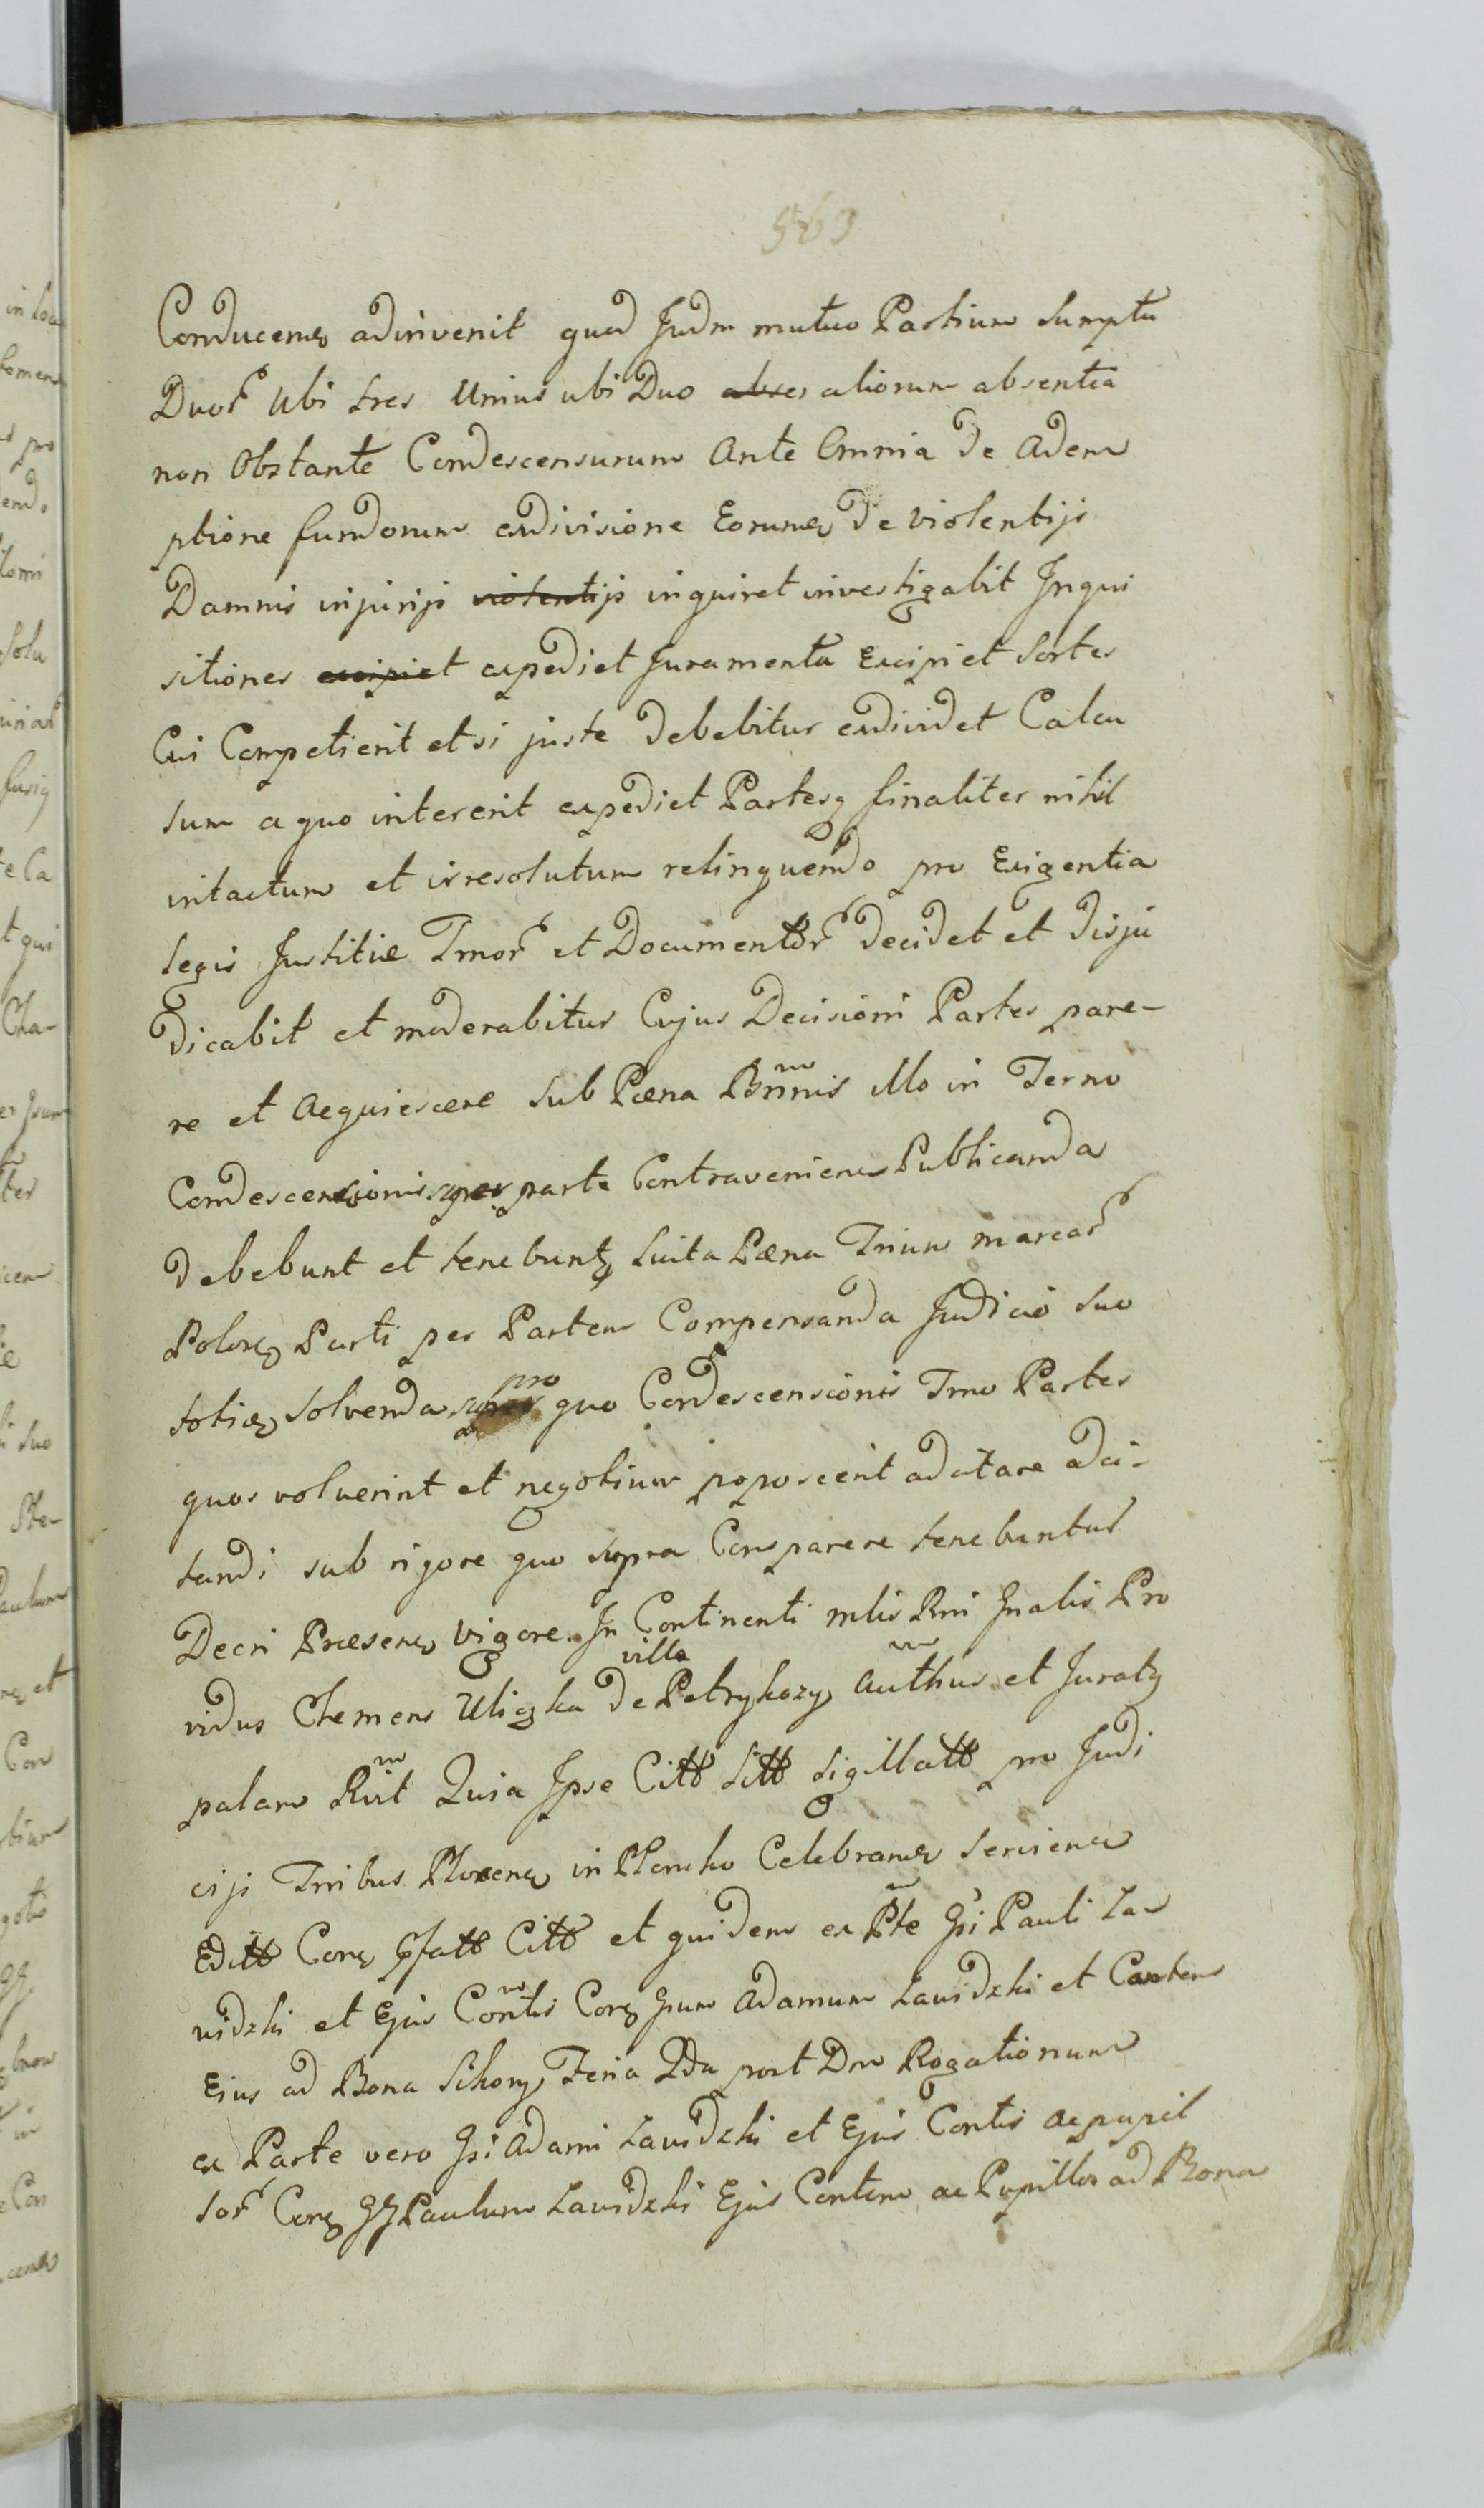 563
Conducenẹ adinvenit quod Judm mutuo Partium Sumptu
Duor̃ Ubi tres Unius ubi Duo abse aliorum absentia
non Obstante Condescensurum Ante Omnia de Adem
ptione fundorum exdivisione Eorumq de violentijs
Damnis injurijs violentijs inquiret investigabit Inqui
sitiones excipiet expediet Juramenta Excipiet Sortes
Cui Competierit et si juste debebitur exdividet Calcu
lum a quo intererit expediet Partesq finaliter nihil
intactum et irresolutum relinquendo pro Exigentia
legis Justitiæ Tmor̃ et Documentor̃ decidet et disju
dicabit et moderabitur Cujus Decisioni Partes pare-
re et Acquiescere Sub Pœna Bñnis illo in Termo
Condescensionis super parte Contraveniens Publicanda
debebunt et tenebuntq Luita Pæna Trium marcar̃
Polonq Parti per Partem Compensanda Judicio Suo
totieq solvenda super pro quo Condescensionis Tmo Partes
quos voluerint et negotium poposcerit adcitare adci-
tandi sub rigore quo supra Comparere tenebuntur
Decri Præsenq Vigore. In Continenti mlis Rni Gnalis Pro
vidus Clemens Uliczka de villa Petrykozy Authus et Juratq
palam Rvit Quia Ipse Citt Litt Sigillatt pro Judi
cijs Tribus Plocenq in Plonsko Celebranq serviens
Editt Corq Pfatt Citt et quidem ex Pte Gsi Pauli La
vidzki et Ejus Contis Corq Gsum Adamum Lavidzki et Contem
Eius ad Bona Sikory Feria 2da post Dm Rogationum
ex Parte vero Gsi Adami Lavidzki et Ejus Contis ac pupil
lor̃ Corq GG Paulum Lavidzki Ejus Contem ac Pupillos ad Bona